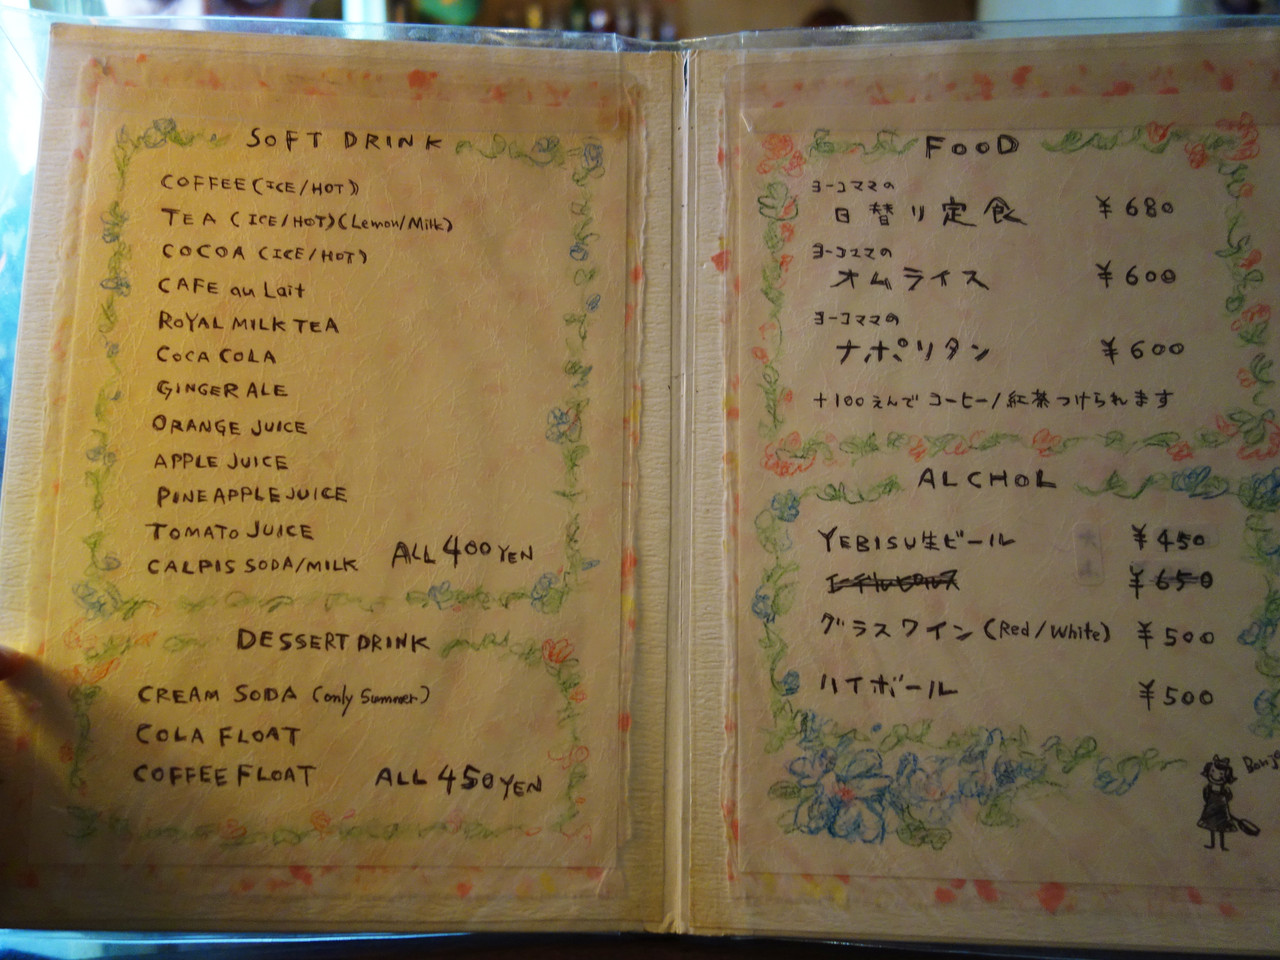 SOFT DRINK
COFFEE (ICE/HOT)
TEA (ICE/HOT) (Lemon/Milk)
COCOA (ICE/HOT)
CAFE au Lait
ROYAL MILK TEA
COCA COLA
GINGER ALE
ORANGE JUICE
APPLE JUICE
PINEAPPLE JUICE
TOMATO JUICE
CALPIS SODA/MILK ALL 400 YEN
DESSERT DRINK
CREAM SODA (only Summer)
COLA FLOAT
COFFEE FLOAT ALL 450 YEN
FOOD
ヨーコママの
日替り定食 ¥680
ヨーコママの
オムライス ¥600
ヨーコママの
ナポリタン ¥600
+100えんで コーヒー/紅茶つけられます
ALCHOL
YEBISU生ビール ¥450
¥650
グラスワイン (Red/White) ¥500
ハイボール ¥500